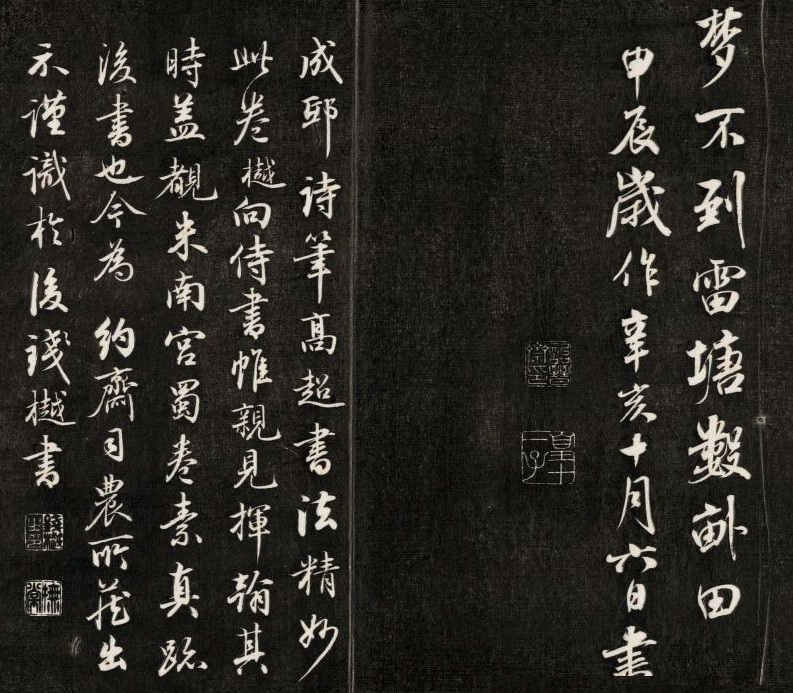 梦不到雷塘數畝田
甲辰歲作辛亥十月六日書
成邸詩筆高超書法精妙
此卷樾向侍書帷親見揮翰其
時蓋觀米南宮蜀卷素真跡
後書也今為約齋司農所藏出
示謹識於後錢樾書
皇十一子